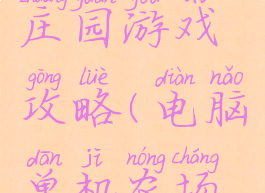 zhuāng yuán yóu xì
庄园游戏
gōng lüè diàn nǎo
攻略(电脑
dān jī nóng chǎng
单机农场